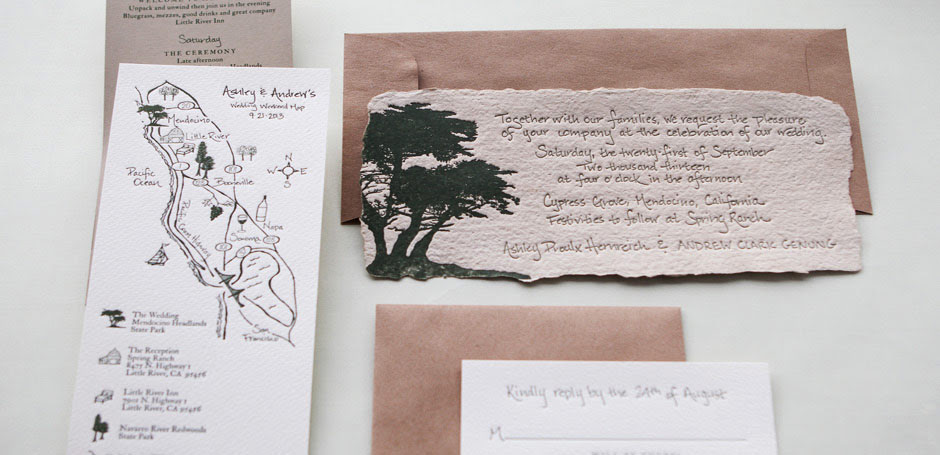 Unpack and unwind then join us in the evening
Bluegrass, mezzes, good drinks and great company
Little River Inn
Saturday
THE CEREMONY
Late afternoon
Ashley & Andrew's
Wedding Weekend Map
9·21·2013
Mendocino
Little River
Pacific
Ocean
N
W E
S
Boonville
Napa
Sonoma
San
Francisco
The Wedding
Mendocino Headlands
State Park
The Reception
Spring Ranch
8475 N. Highway 1
Little River, CA 95456
Little River Inn
7901 N. Highway 1
Little River, CA 95456
Navarro River Redwoods
State Park
Together with our families, we request the pleasure
of your company at the celebration of our wedding.
Saturday, the twenty-first of September
Two thousand thirteen
at four o'clock in the afternoon
Cypress Grove, Mendocino, California
Festivities to follow at Spring Ranch
Ashley Proulx Hernreich & ANDREW CLARK GENUNG
Kindly reply by the 24th of August
M